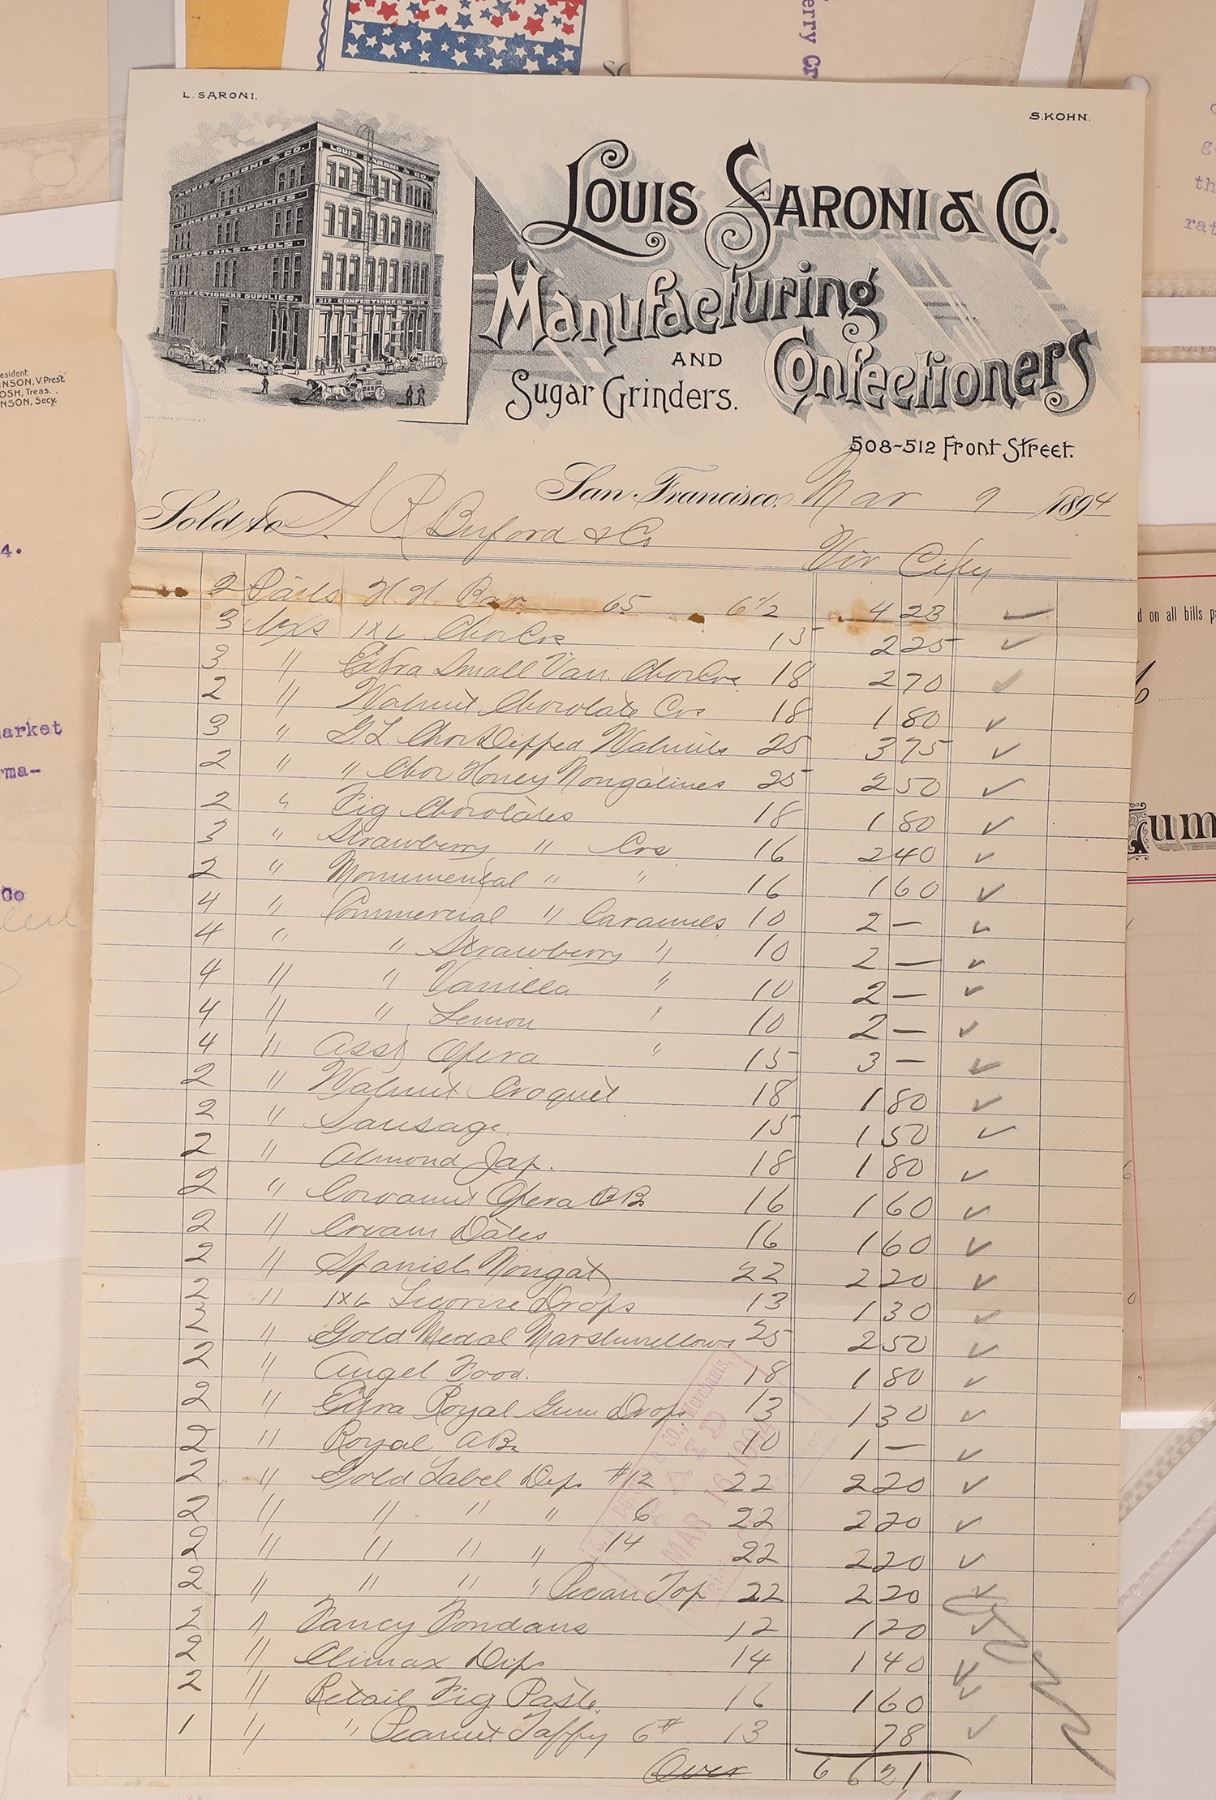 L. SARONI.
S. KOHN.
LOUIS SARONI & CO.
LOUIS SARONI & CO.
CONFECTIONERS SUPPLIES.
312 CONFECTIONERS 508
LOUIS SARONI & CO.
Manufacturing
AND
Confectioners
Sugar Grinders.
508-512 Front Street.
San Francisco, Mar 9 1894
Sold to R Buford & Co
Vir City
2 Pails H. H. Bar 65 6 1/2 4 23
3 Bxs 1X6 Choc Crs 15 2 25
3 " Extra Small Van. Choc Crs 18 2 70
2 " Walnut Chocolate Crs 18 1 80
3 " G. L Choc Dipped Walnuts 25 3 75
2 " " Choc Honey Nougatines 25 2 50
2 " Fig Chocolates 18 1 80
3 " Strawberry " Crs 16 2 40
2 " Monumental " " 16 1 60
4 " Commercial " Caramels 10 2 —
4 " " Strawberry " 10 2 —
4 " " Vanilla " 10 2 —
4 " " Lemon " 10 2 —
4 " Asst Opera " 15 3 —
2 " Walnut Croquet 18 1 80
2 " Sausage 15 1 50
2 " Almond Jap. 18 1 80
2 " Cocoanut Opera BB 16 1 60
2 " Cream Dates 16 1 60
2 " Spanish Nougat 22 2 20
2 " 1X6 Licorice Drops 13 1 30
2 " Gold Medal Marshmellows 25 2 50
2 " Angel Food. 18 1 80
2 " Extra Royal Gum Drops 13 1 30
2 " Royal AB 10 1 —
2 " Gold Label Dips #12 22 2 20
2 " " " " 6 22 2 20
2 " " " " 14 22 2 20
2 " " " " Pecan Top 22 2 20
2 " Fancy Fondans 12 1 20
2 " Climax Dips 14 1 40
2 " Retail Fig Paste 16 1 60
1 " " Peanut Taffy 6# 13 78
Over 66 21
PAID
MAR 16
erry Gr
th
rat
esident
NSON, V. Prest
OSH, Treas.
NSON, Secy.
4.
arket
rma-
Co
d on all bills p
Gum